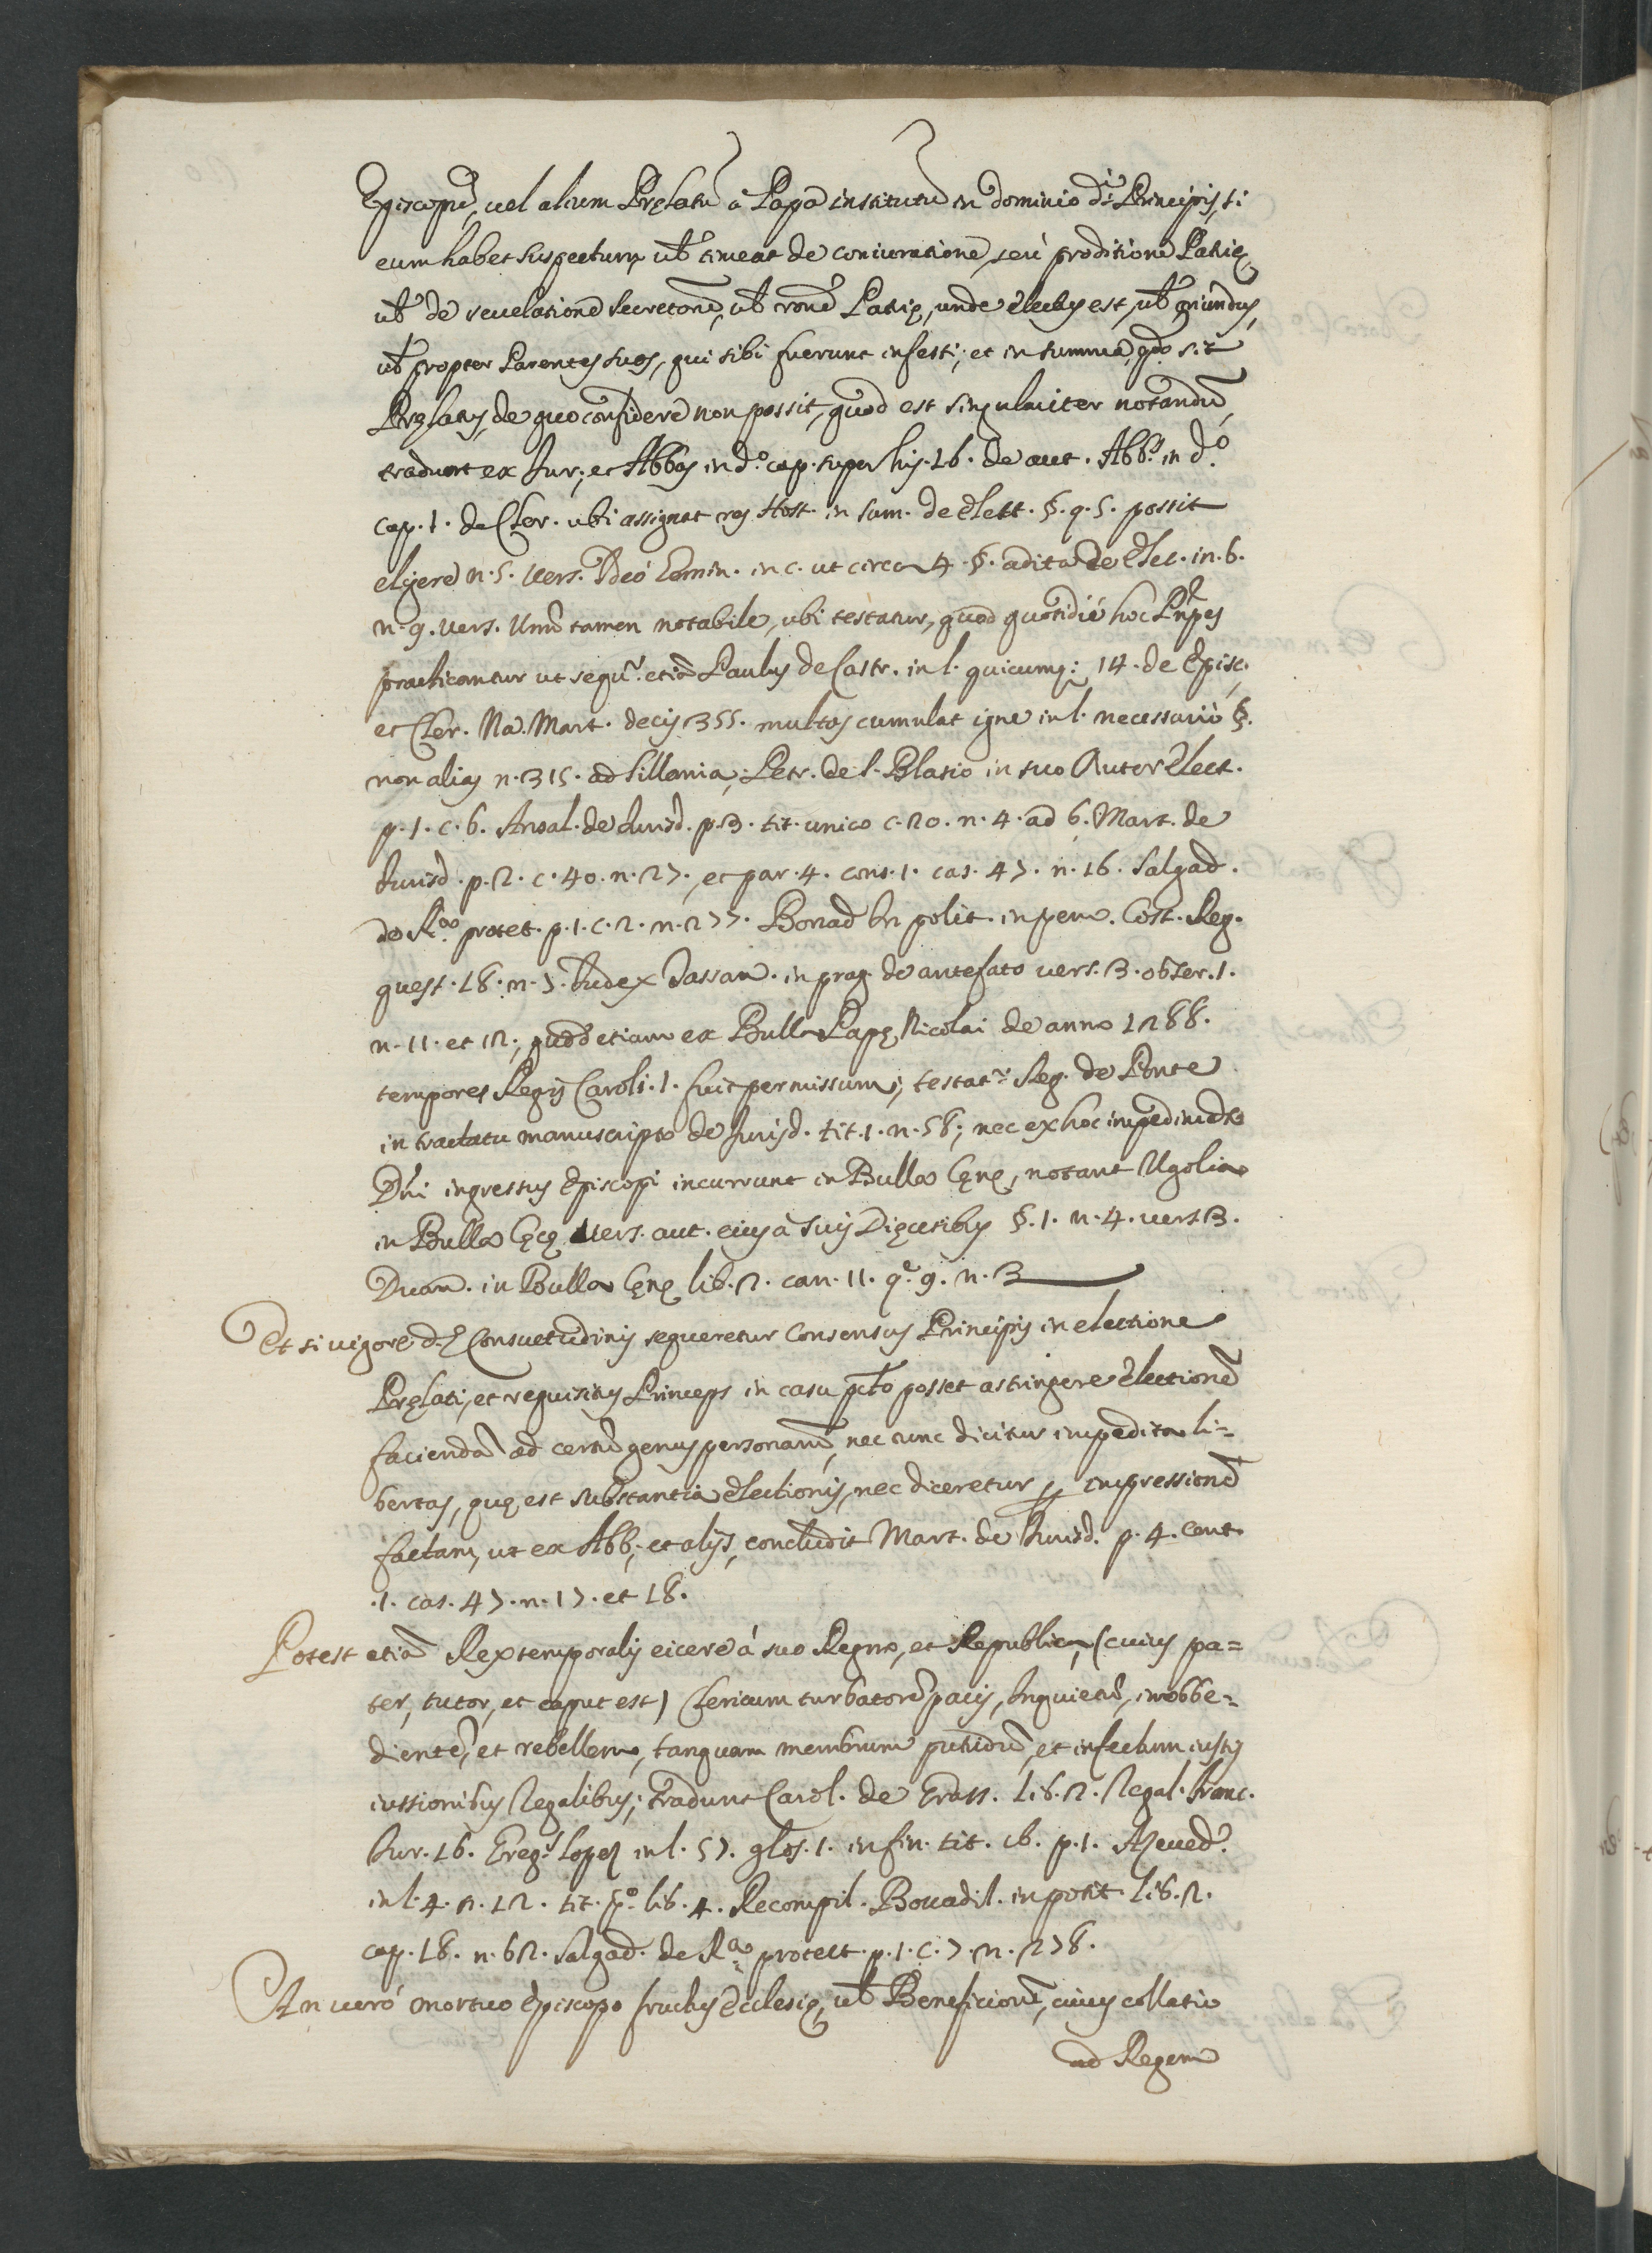 Episcopũ, uel alium Pręlatũ à Papa institutũ in dominio d.i Principis, si
eum habet suspectum, ut̃ timeat de coniuratione, seù proditione Patrię
ut̃ de reuelatione secretorũ, ut̃ rone Patrię, unde electus est, ut̃ oriundus,
ut̃ propter Parentes suos, qui sibi fuerunt infesti; et in summa, qdo sit
Pręlatus, de quo confidere non possit, quod est singulariter notandũ,
tradunt ex Iur; et Abbas in d.o cap. super his. 16. de aut. Abb. in d.o
cap. 1. de Cler. ubi assignat ros Host. in sum. de elett. §. q. 5. possit
eligere n. 5. uers. Ideò Domin. in c. ut circa 4. §. adita de elec. in. 6.
n. 9. uers. Unũ tamen notabile, ubi testatur, quod quotidiè hoc Pñpes
practicantur ut sequr. etiã Paulus de Castr. in l. quicumq: 14. de Episc.
et Cler. Na. Mart. decis 355. multos cumulat igne in l. necessariò §.
non alias n. 315. ad Sillania, Petr. de l. Blasio in suo Auter elect.
p. 1. c. 6. Ansal. de Iurisd. p. 3. tit. unico c. 20. n. 4. ad 6. Mart. de
Iurisd. p. 2. c. 40. n. 27. et par. 4. cons. 1. cas. 47. n. 16. Salgad.
de R.a protet. p. 1. c. 2. n. 277. Bonad in polit. in pem. Cost. Reg.
quest. 18. n. 7. Iudex Tassan. in prag. de antefato uers. 3. obser. 1.
n. 11. et 12; quod etiam ex Bulla Papę Nicolai de anno 1288.
tempores Regis Caroli. 1. fuit permissum; testatr. Reg. de Ponte
in tractatu manuscripto de Iurisd. tit. 1. n. 58; nec ex hoc impedimẽto
Dñi ingressus Episcopi incurrunt in Bulla Cęnę, notant Ugolin
in Bulla Cęnę uers. aut. eius à suis Dięcesibus §. 1. n. 4. uers 3.
Duan. in Bulla Cęnę lib. 2. can. 11. q.e 9. n. 3
Et si uigore d.ę Consuetudinis sequeretur Consensus Principis in electione
Pręlati, et requisitus Princeps in casu pcto posset astringere electionẽ
faciendã ad certũ genus personarũ, nec tunc dicitur impedita li=
bertas, quę est substantia electionis, nec diceretur p impressionẽ
factam, ut ex Abb; et alijs, concludit Mart. de Iurisd. p. 4. cent.
.1. cas. 47. n. 17. et 18.
Potest etiã Rex temporalis eicere à suo Regno, et Republica, (cuius pa=
ter, tutor, et caput est) Clericum turbatorẽ pacis, Inquietũ, inobbe=
dientẽ, et rebellem, tanquam membrum putridũ, et infectum iustis
iussionibus Regalibus; tradunt Carol. de Grass. lib. 2. Regal. Franc.
Iur. 16. Greg. Lopez in l. 57. glos. 1. in fin. tit. 16. p. 1. Azeued.
in l. 4. n. 12. tit. p.o lib. 4. Recompil. Bouadil. in potit. lib. 2.
cap. 18. n. 62. Salgad. de R.a protect. p. 1. c. 7. n. 278.
An uerò mortuo Episcopo fructus Ecclesię, ut̃ Beneficiorũ, cuius collatio
ad Regem